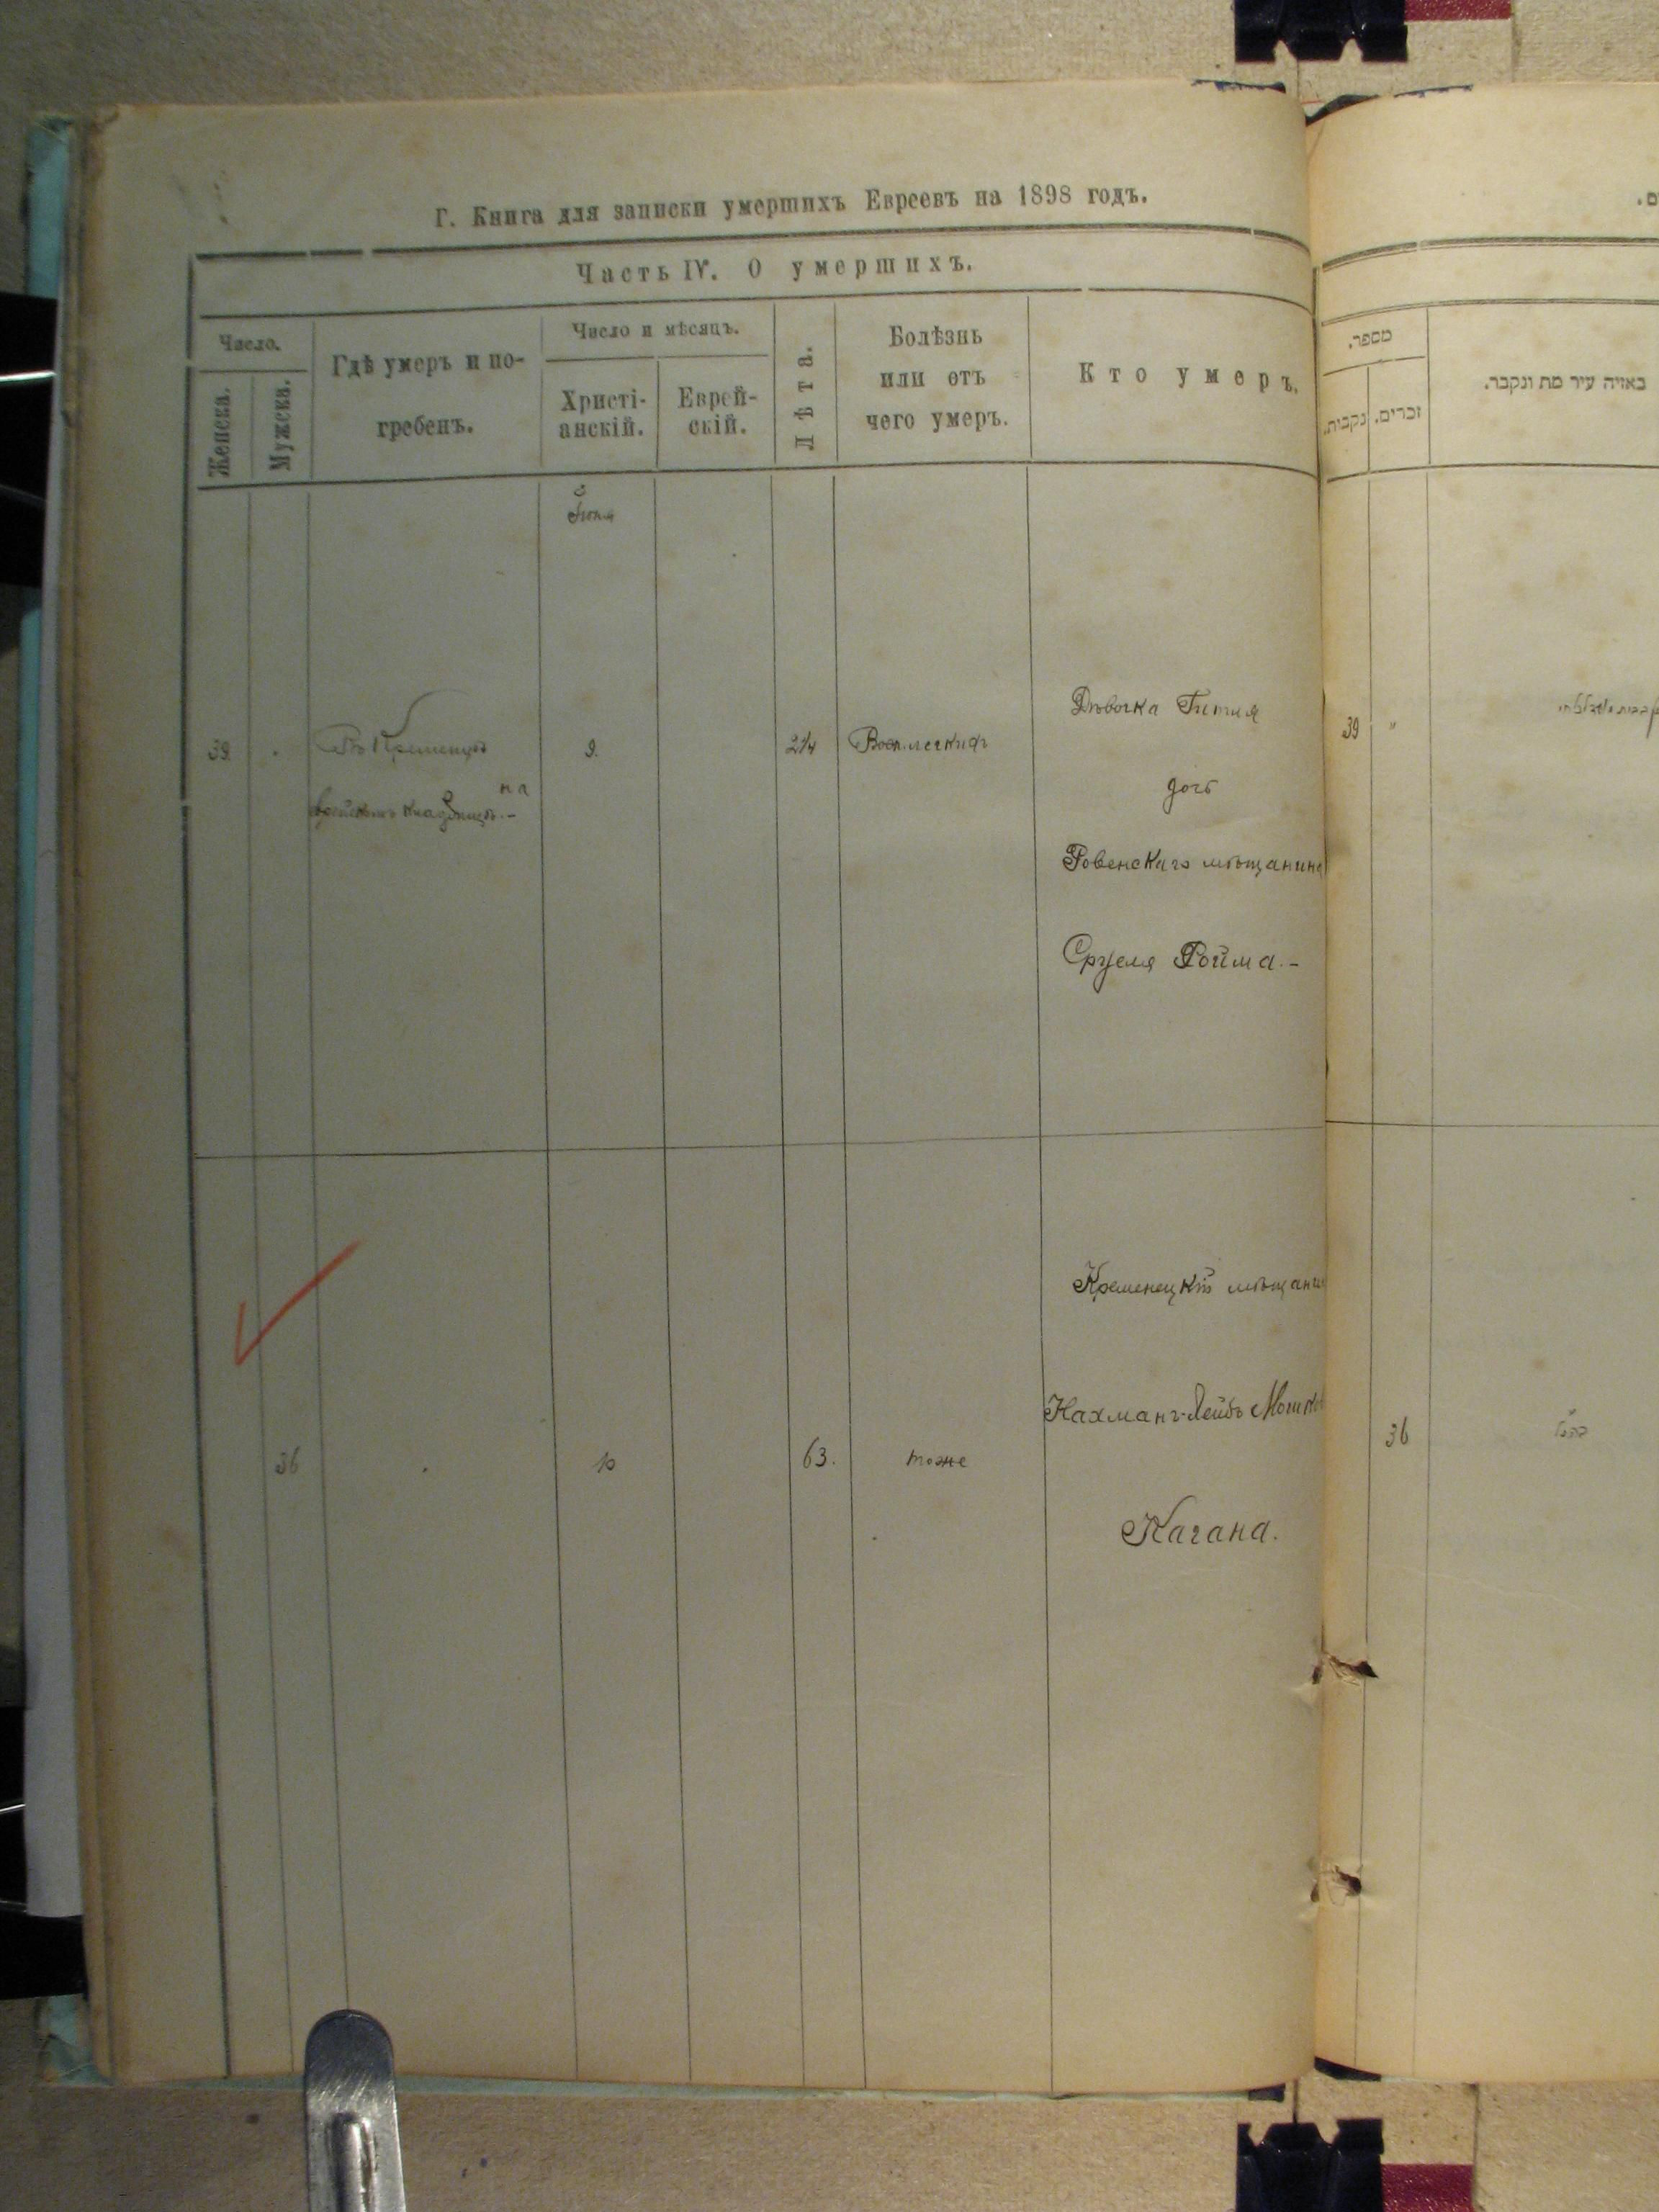 Г. Книга для записки умершихъ Евреевъ на 1898 годъ.
Часть IV. О умершихъ.
Число.
Женска.
Мужска.
Гдѣ умеръ и по-
гребенъ.
Число и мѣсяцъ.
Христі-
анскій.
Еврей-
скій.
Лѣта.
Болѣзнь
или отъ
чего умеръ.
Кто умеръ.
Іюня
39.
Въ Кременцѣ
на
кладбищѣ.-
9.
2 1/4
Восп. легкихъ
Дѣвочка Гитля
дочь
Ровенскаго мѣщанина
Сруля Ройма.-
36
10
63.
тоже
Кременецкій мѣщанин
Нахманъ-Лейбъ Мошков
Кагана.
מספר.
נקבות.
זכרים.
באיזה עיר מת ונקבר.
39
"
36